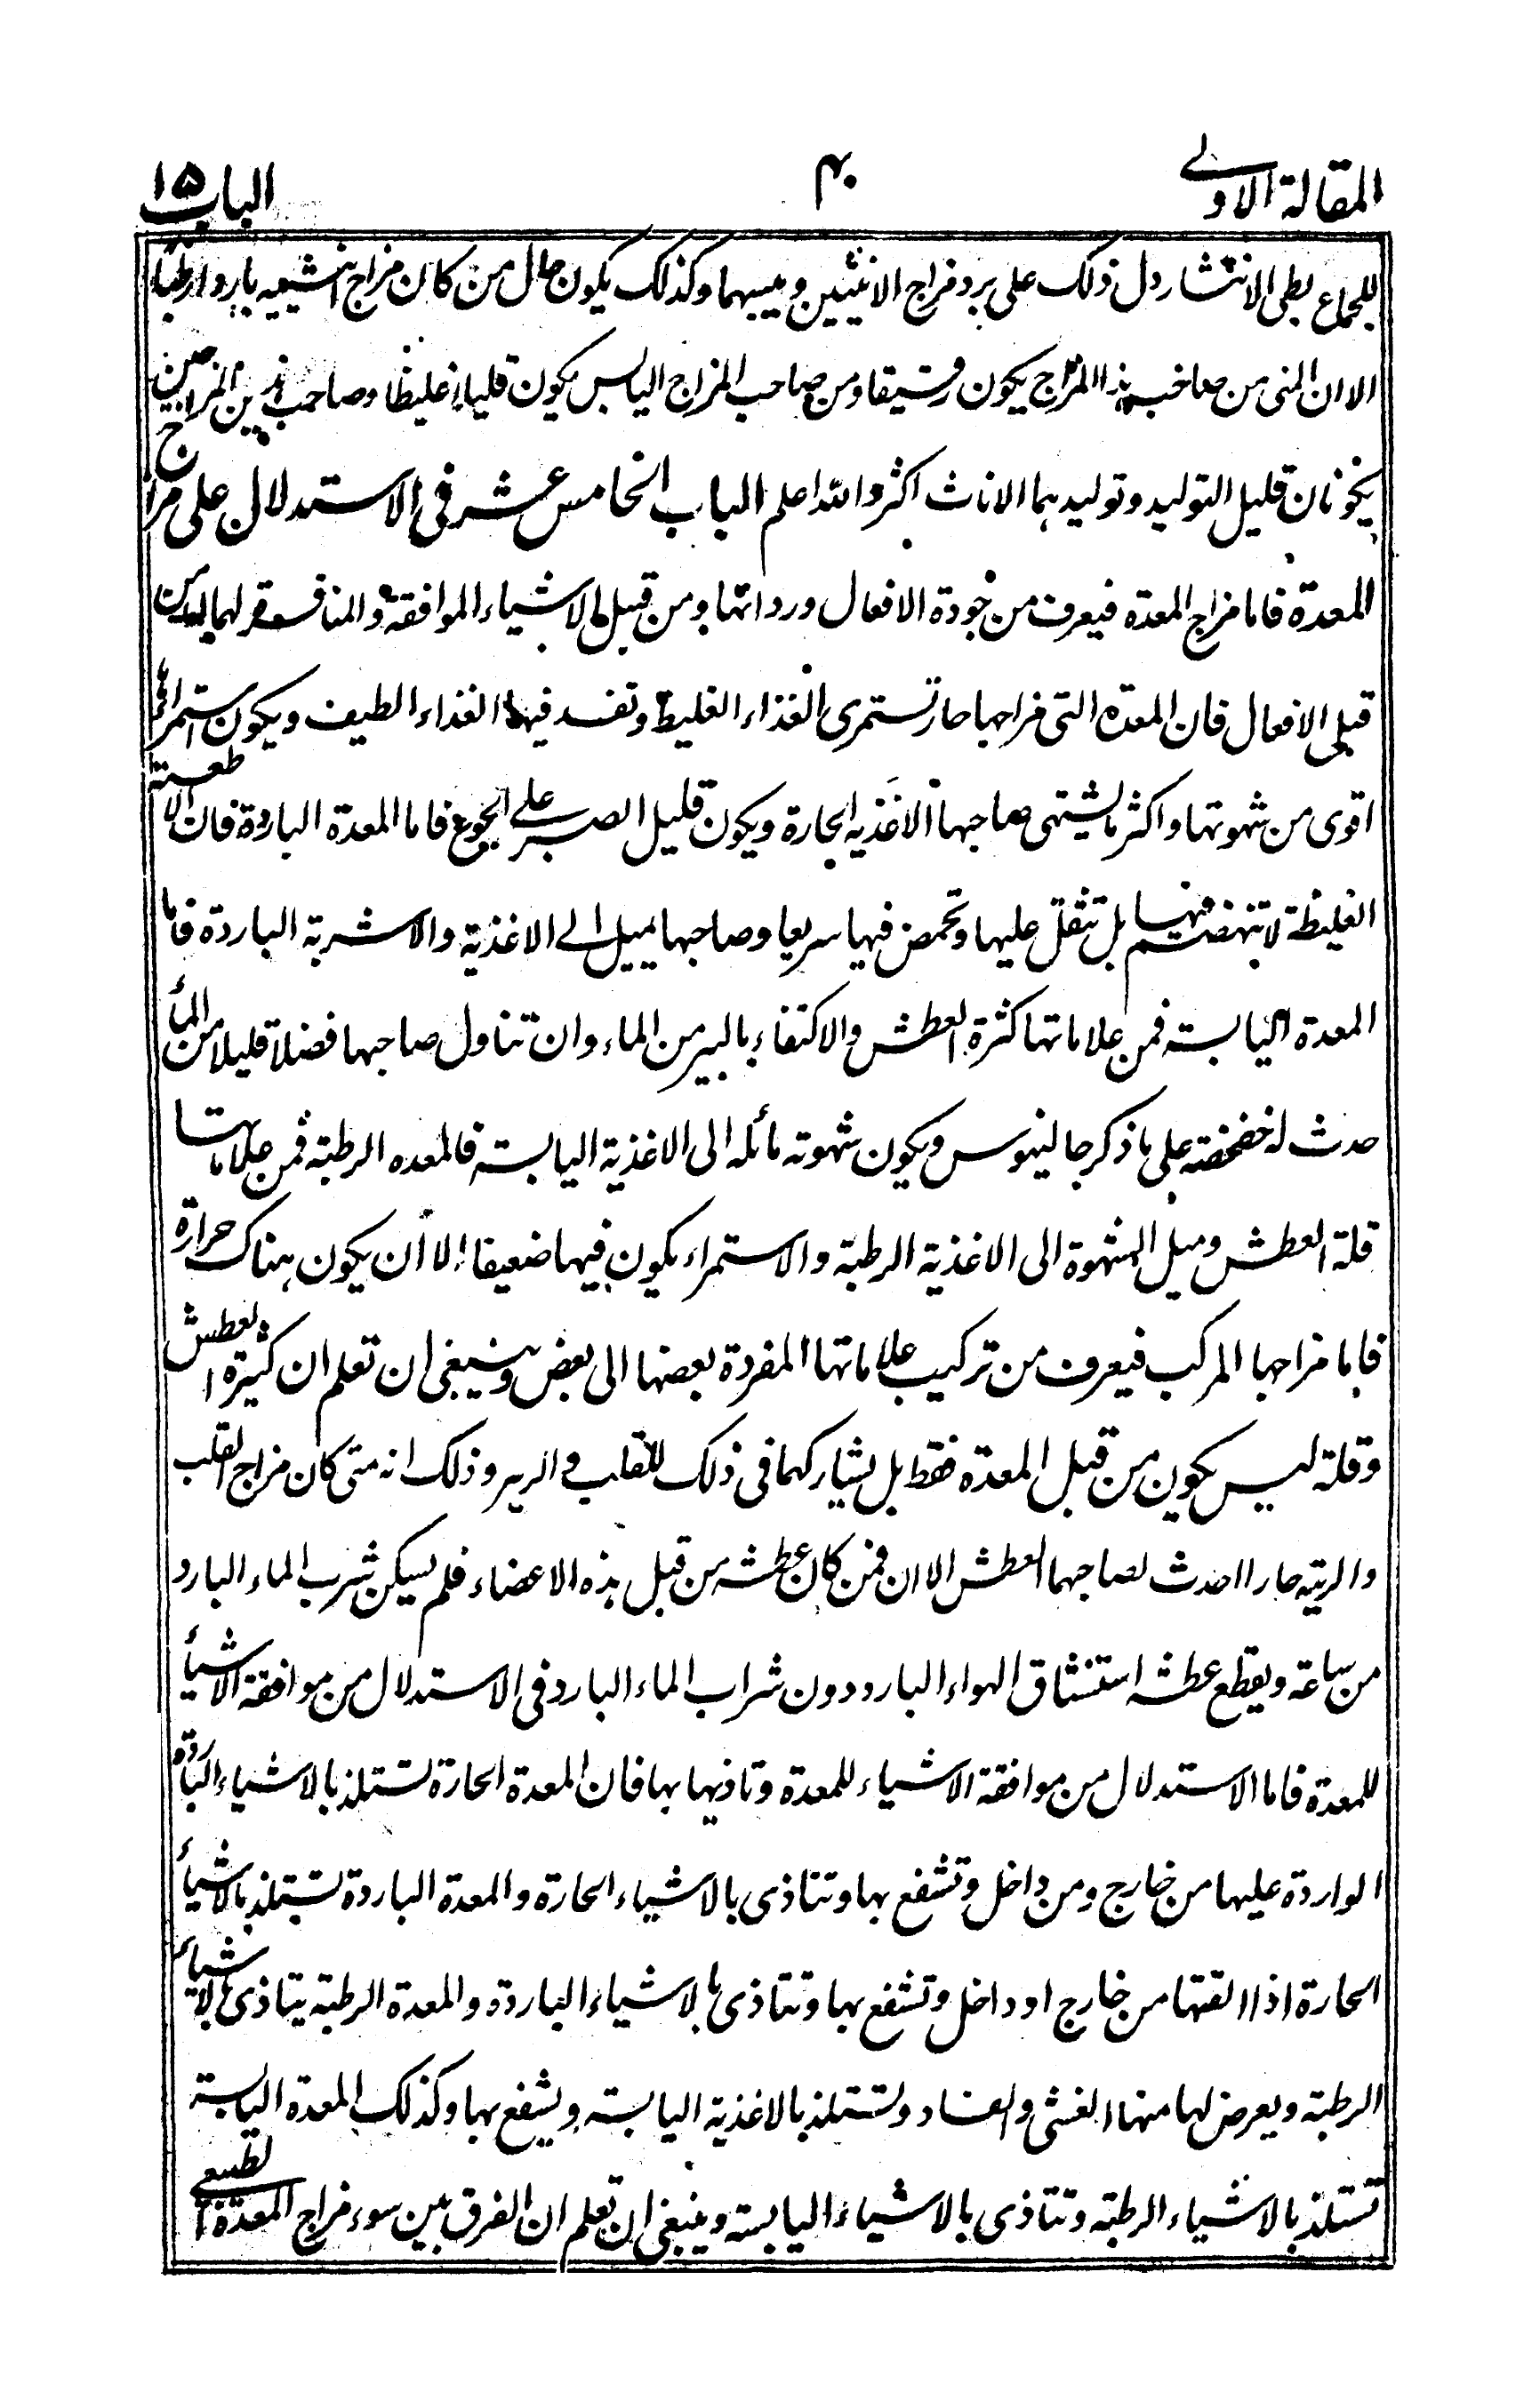 المقالة الاولى ۴۰ الباب ۱۵
للجماع بطى الانتشار دل ذلك على برد مزاج الانثيين ويبسهما وكذلك يكون حال من كان مزاج انثييه باردا رطبا
الا ان المنى من صاحب هذا المزاج يكون رقيقا ومن صاحب المزاج اليابس يكون قليلا غليظا وصاحب هذين المزاجين
يكونان قليل التوليد وتوليدهما الاناث اكثر والله اعلم الباب الخامس عشر فى الاستدلال على مزاج
المعدة فاما مزاج المعدة فيعرف من جودة الافعال ورداتها ومن قبل الاشياء الموافقة والمنافرة لها اما من
قبل الافعال فان المعدة التى مزاجها حار تستمرى الغذاء الغليظ وتفسد فيها الغذاء الطيف ويكون استمراؤها
اقوى من شهوتها واكثر ما يشتهى صاحبها الاغذية الحارة ويكون قليل الصبر على الجوع فاما المعدة الباردة فان الاطعمة
الغليظة لا تنهضم فيها بل تثقل عليها وتحمض فيها سريعا وصاحبها يميل الى الاغذية والاشربة الباردة فاما
المعدة اليابسة فمن علاماتها كثرة العطش والاكتفاء باليسير من الماء وان تناول صاحبها فضلا قليلا من الماء
حدث له خضخضة على ما ذكر جالينوس ويكون شهوته مائله الى الاغذية اليابسة فالمعده الرطبة فمن علاماتها
قلة العطش وميل الشهوة الى الاغذية الرطبة والاستمراء يكون فيها ضعيفا الا ان يكون هناك حرارة
فاما مزاجها المركب فيعرف من تركيب علاماتها المفردة بعضها الى بعض وينبغى ان تعلم ان كثرة العطش
وقلته ليس يكون من قبل المعدة فقط بل يشاركها فى ذلك القلب و الريه وذلك انه متى كان مزاج القلب
والريته حارا احدث لصاحبها العطش الا ان فمن كان عطشه من قبل هذه الاعضاء فلم يسكن شرب الماء البارد
من ساعة ويقطع عطشه استنشاق الهواء البارد دون شراب الماء البارد فى الاستدلال من موافقة الاشياء
للمعدة فاما الاستدلال من موافقة الاشياء للمعدة وتاذيها بها فان المعدة الحارة تستلذ بالاشياء الباردة
الواردة عليها من خارج ومن داخل وتنتفع بها وتتاذى بالاشياء الحارة والمعدة الباردة تستلذ بالاشياء
الحارة اذا القتها من خارج او داخل وتنتفع بها وتتاذى بالاشياء الباردة والمعدة الرطبة يتاذى بالاشياء
الرطبة ويعرض لها منها الغشى والفساد وتستلذ بالاغذية اليابسة وينتفع بها وكذلك المعدة اليابسة
تستلذ بالاشياء الرطبة وتتاذى بالاشياء اليابسة وينبغى ان تعلم ان الفرق بين سوء مزاج المعدة الطبيعى